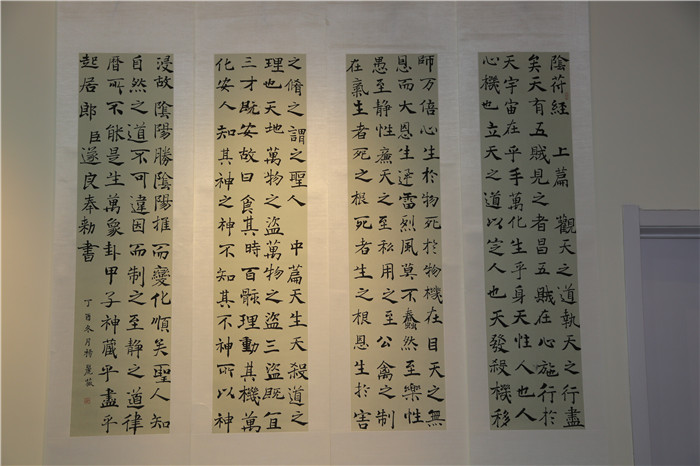 陰符經 上篇 觀天之道執天之行盡
矣天有五賊見之者昌五賊在心施行於
天宇宙在乎手萬化生乎身天性人也人
心機也立天之道以定人也天發殺機移
師万倍心生於物死於物機在目天之無
恩而大恩生迅雷烈風莫不蠢然至樂性
愚至静性廉天之至私用之至公禽之制
在氣生者死之根死者生之根恩生於害
之脩謂之聖人 中篇天生天殺道之
理也天地萬物之盜萬物之盜三盜既宜
三才既安故曰食其時百骸理動其機萬
化安人知其神之神不知其不神所以神
浸故陰陽勝陰陽推而變化順矣聖人知
自然之道不可違因而制之至静之道律
曆所不能是生萬象卦甲子神藏乎盡乎
起居郎臣遂良奉勑書
丁酉冬月